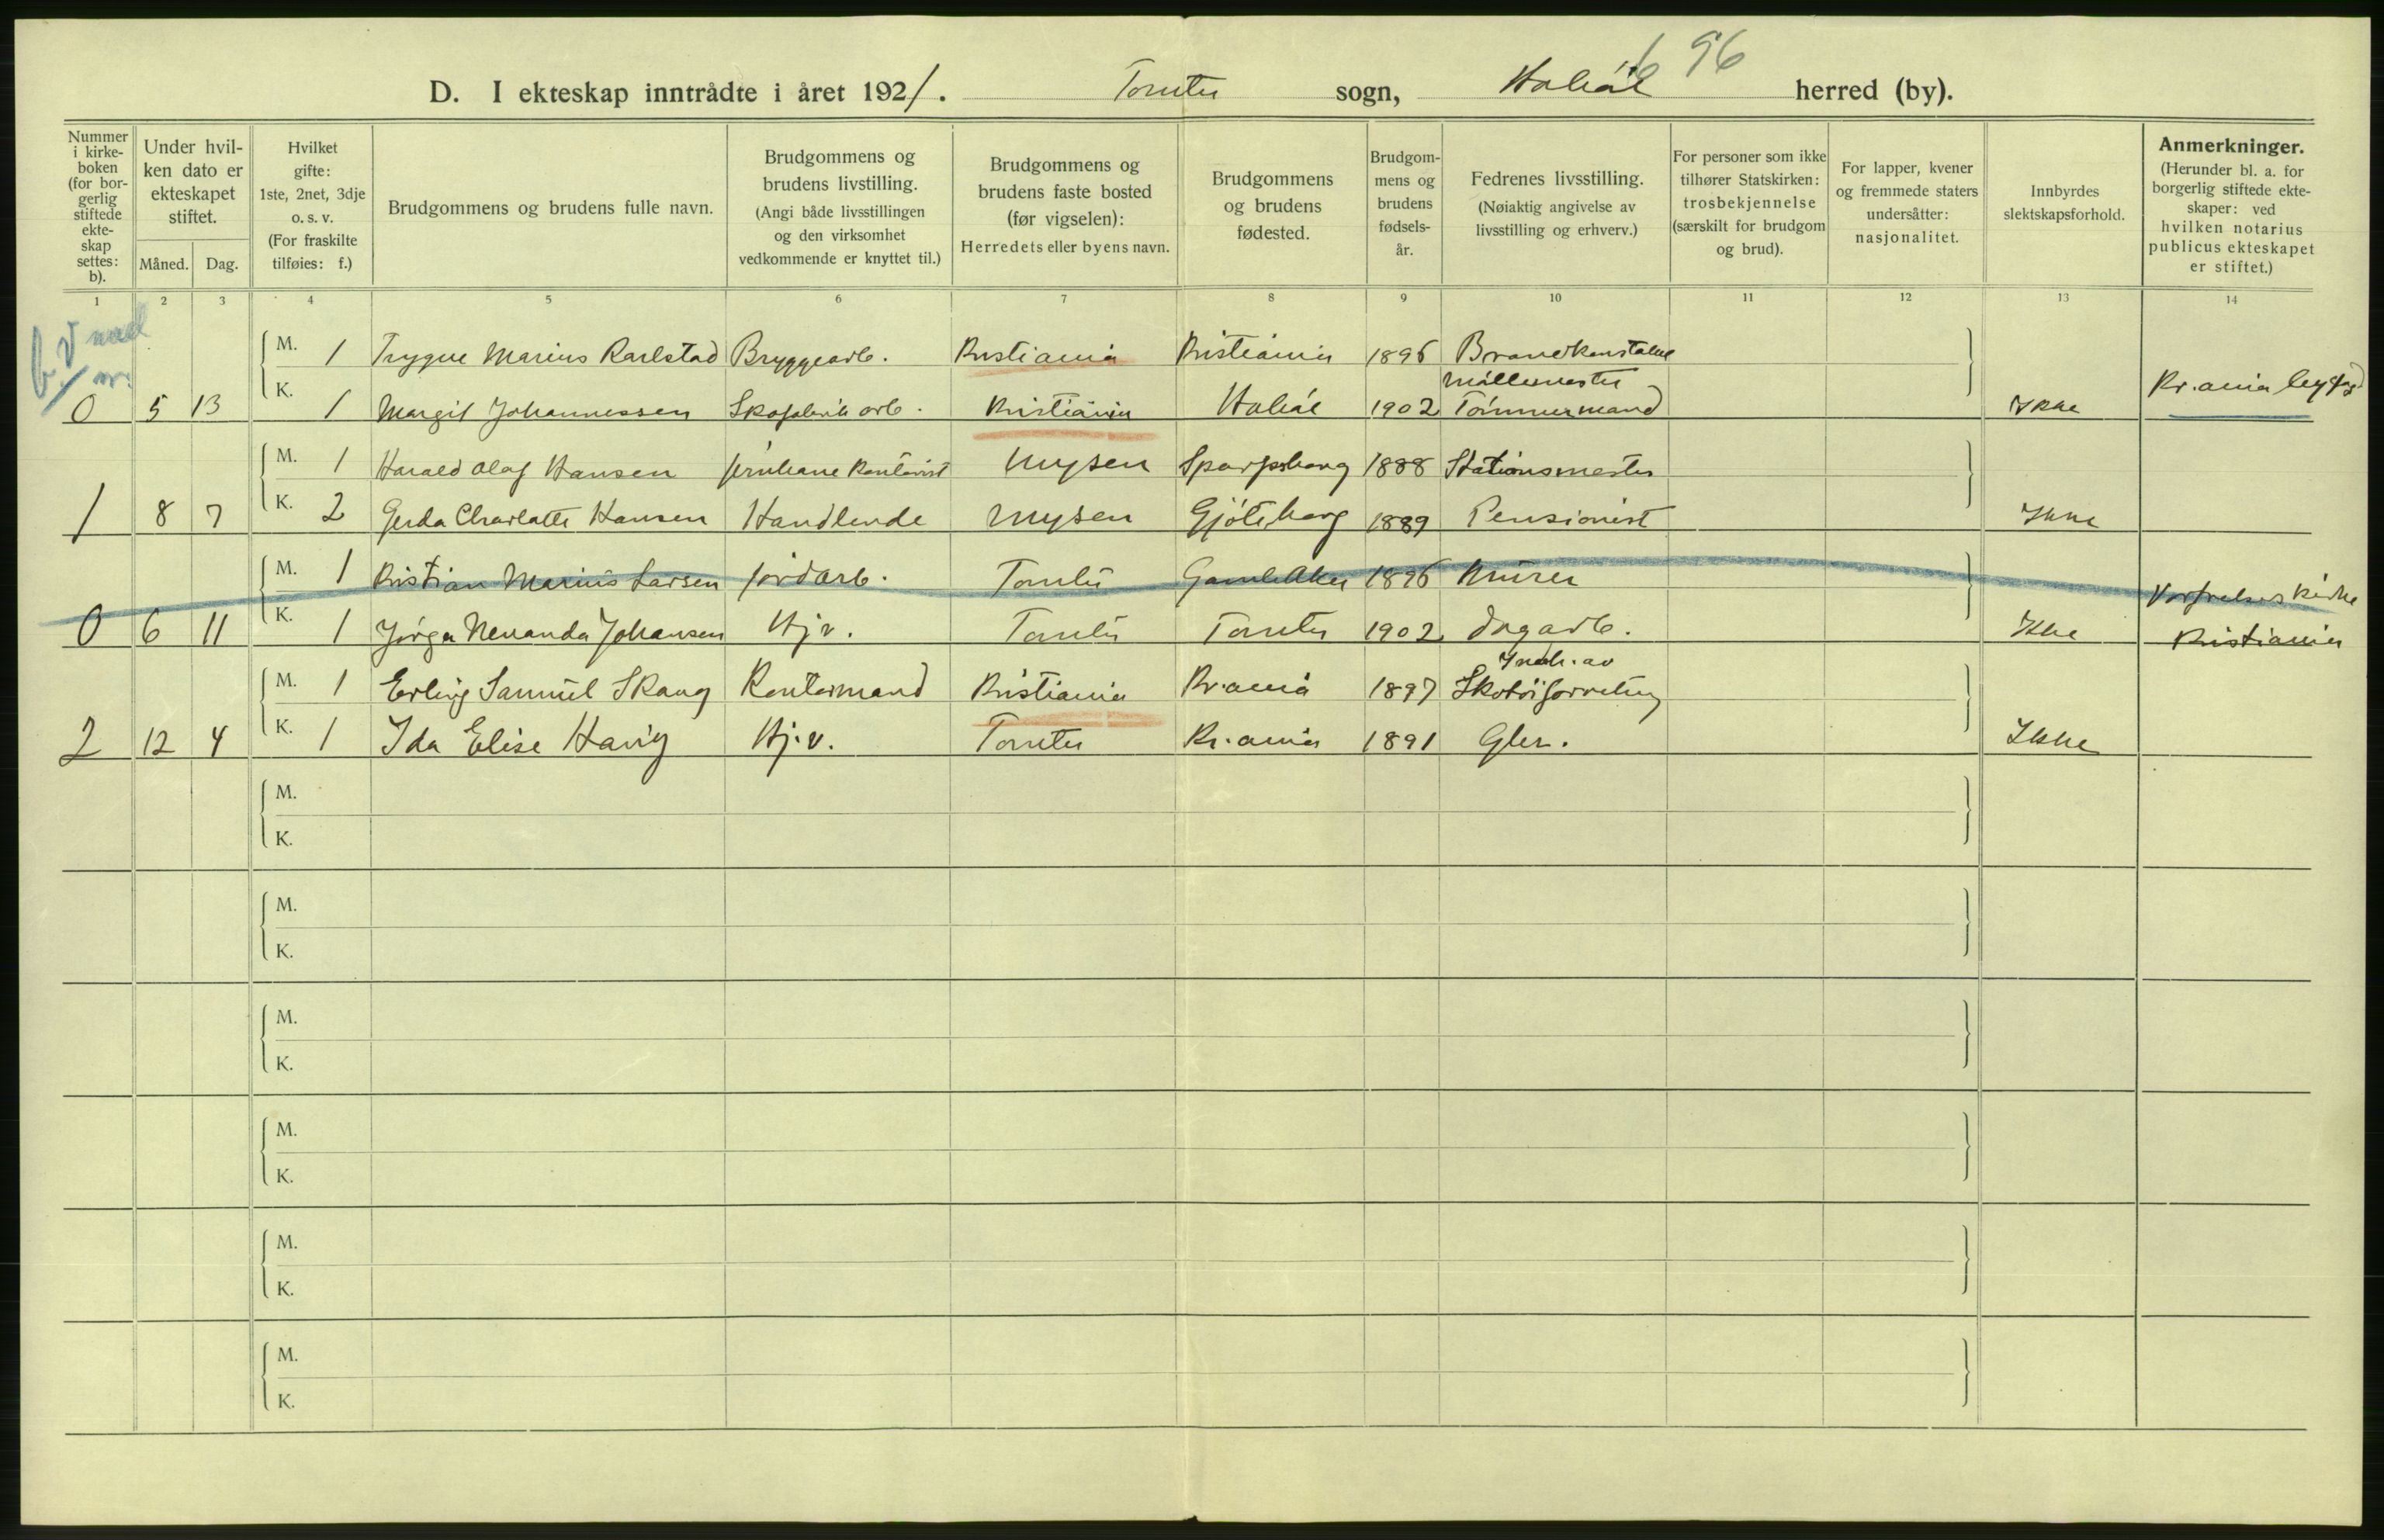 6 96
D. I ekteskap inntrådte i året 1921. Tomter sogn, Hobøl herred (by).
Nummer i kirkeboken (for borgerlig stiftede ekteskap settes: b).
Under hvilken dato er ekteskapet stiftet.
Måned. Dag.
Hvilket gifte: 1ste, 2net, 3dje o. s. v. (For fraskilte tilføies: f.)
Brudgommens og brudens fulle navn.
Brudgommens og brudens livstilling. (Angi både livsstillingen og den virksomhet vedkommende er knyttet til.)
Brudgommens og brudens faste bosted (før vigselen): Herredets eller byens navn.
Brudgommens og brudens fødested.
Brudgommens og brudens fødselsår.
Fedrenes livsstilling. (Nøiaktig angivelse av livsstilling og erhverv.)
For personer som ikke tilhører Statskirken: trosbekjennelse (særskilt for brudgom og brud).
For lapper, kvener og fremmede staters undersåtter: nasjonalitet.
Innbyrdes slektskapsforhold.
Anmerkninger. (Herunder bl. a. for borgerlig stiftede ekteskaper: ved hvilken notarius publicus ekteskapet er stiftet.)
1 2 3 4 5 6 7 8 9 10 11 12 13 14
M. 1 Trygve Marius Karlstad Bryggearb. Kristiania Kristiania 1896 Brandkonstabel
0 5 13 K. 1 Margit Johannessen Skofabrik arb. Kristiania Hobøl 1902 Møllemester Tømmermand Ikke Kr.ania byfogd
M. 1 Harald Olaf Hansen Jernbane kontorist Mysen Sparpsborg 1888 Stationsmester
1 8 7 K. 2 Gerda Charlotte Hansen Handlende Mysen Gjøteborg 1889 Pensionist Ikke
M. 1 Kristian Marius Larsen Jordarb. Tomter Gamle Aker 1896 Murer
0 6 11 K. 1 Jørga Nenanda Johansen Hj.v. Tomter Tomter 1902 Dagarb. Ikke Vorfrelsers kirke Kristiania
M. 1 Erling Samuel Skaug Kontormand Kristiania Kr.ania 1897 Indh. av Skotøiforretning
2 12 4 K. 1 Ida Elise Havig Hj.v. Tomter Kr.ania 1891 Gbr. Ikke
M.
K.
M.
K.
M.
K.
M.
K.
M.
K.
M.
K.